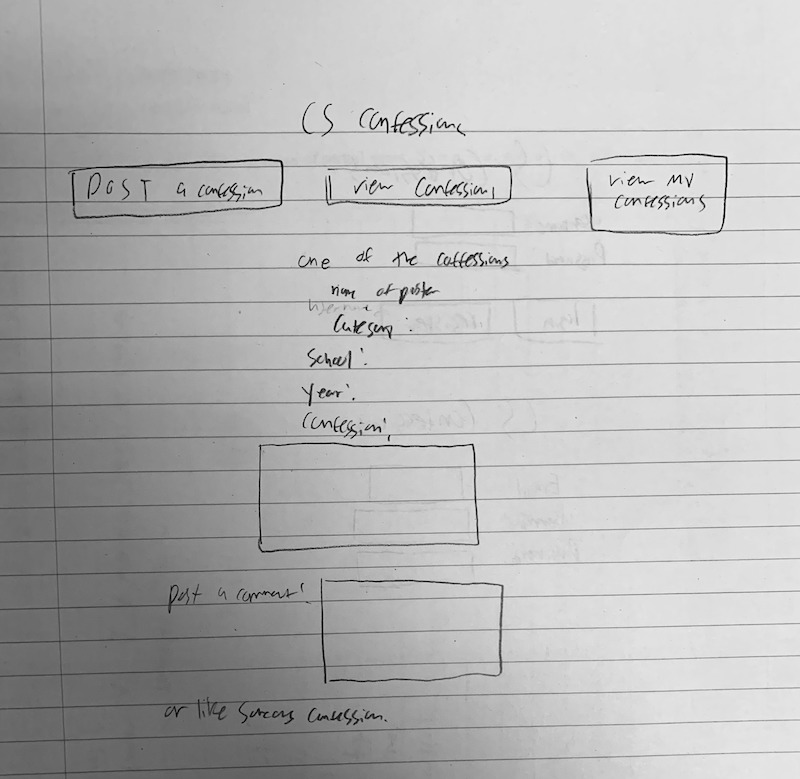 CS Confessions
POST a confession
view Confessions
view my
confessions
one of the coffessions
name of poster
Category:
School:
Year:
Confession:
post a comment:
or like confession.